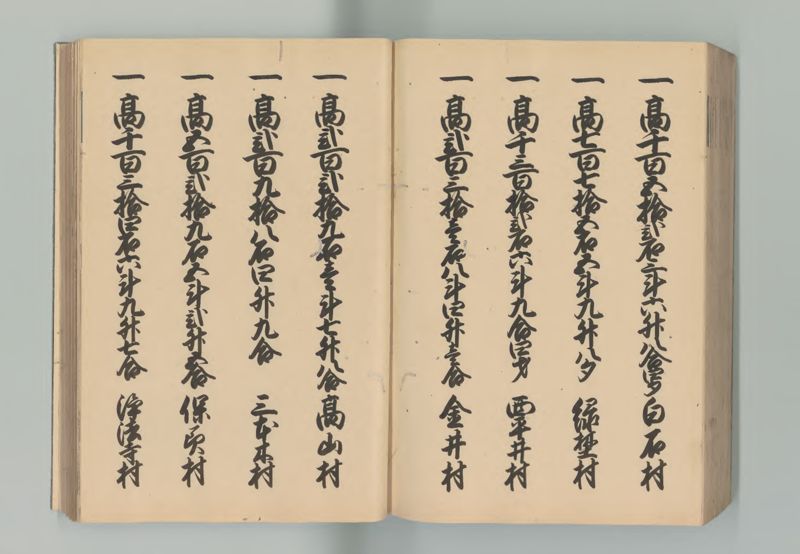 一 高千百五拾弐石三斗六升八合 白石村
一 高七百七拾五石五斗九升八夕 緑埜村
一 高千三百拾弐石六斗九合四才 西平井村
一 高弐百三拾壱石八斗四升壱合 金井村
一 高弐百弐拾九石壱斗七升八合 高山村
一 高弐百九拾八石四升九合 三本木村
一 高五百弐拾九石五斗弐升五合 保美村
一 高千百三拾四石六斗九升七合 浄法寺村